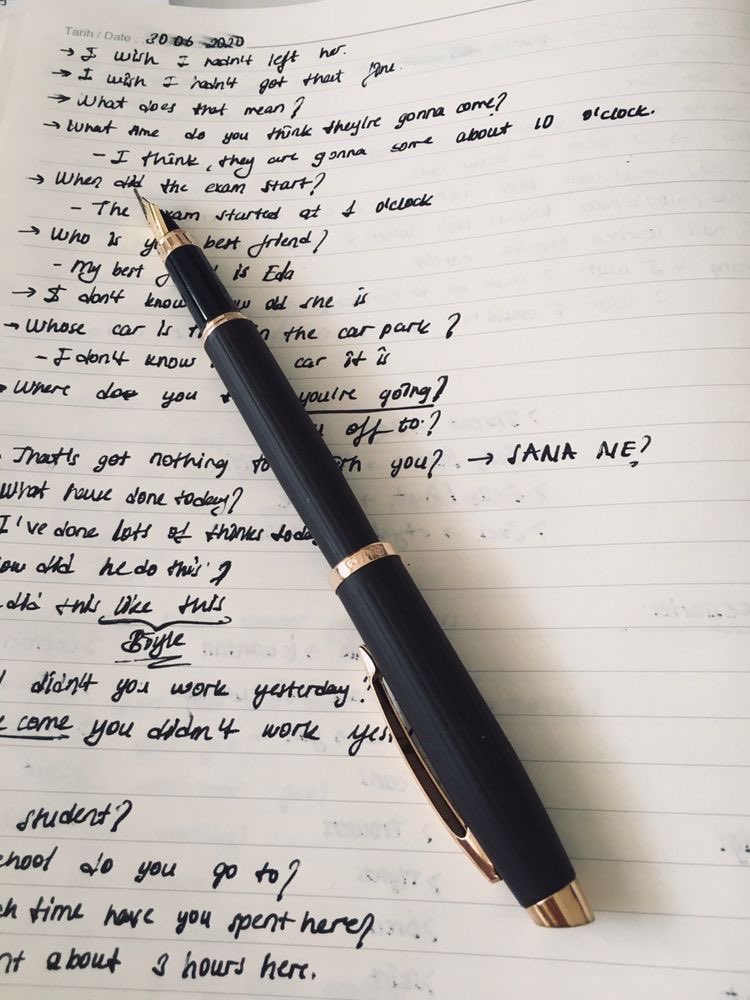 Tarih / Date : 30 06 2020
→ I wish I hadn't left her.
→ I wish I hadn't got that
→ What does that mean?
→ What time do you think they're gonna come?
- I think, they are gonna some about 10 o'clock.
→ When did the exam start?
- The exam started at 1 o'clock
→ Who is best friend?
- My best is Eda
→ I don't know old she is
→ Whose car is in the car park?
- I don't know car it is
Where do you you're going?
off to?
That's got nothing to you? → SANA NE?
What have done today?
I've done lots of thinks
did he do this?
did this like this
Böyle
didn't you work yesterday?
come you didn't work
student?
do you go to?
time have you spent here?
about 3 hours here.